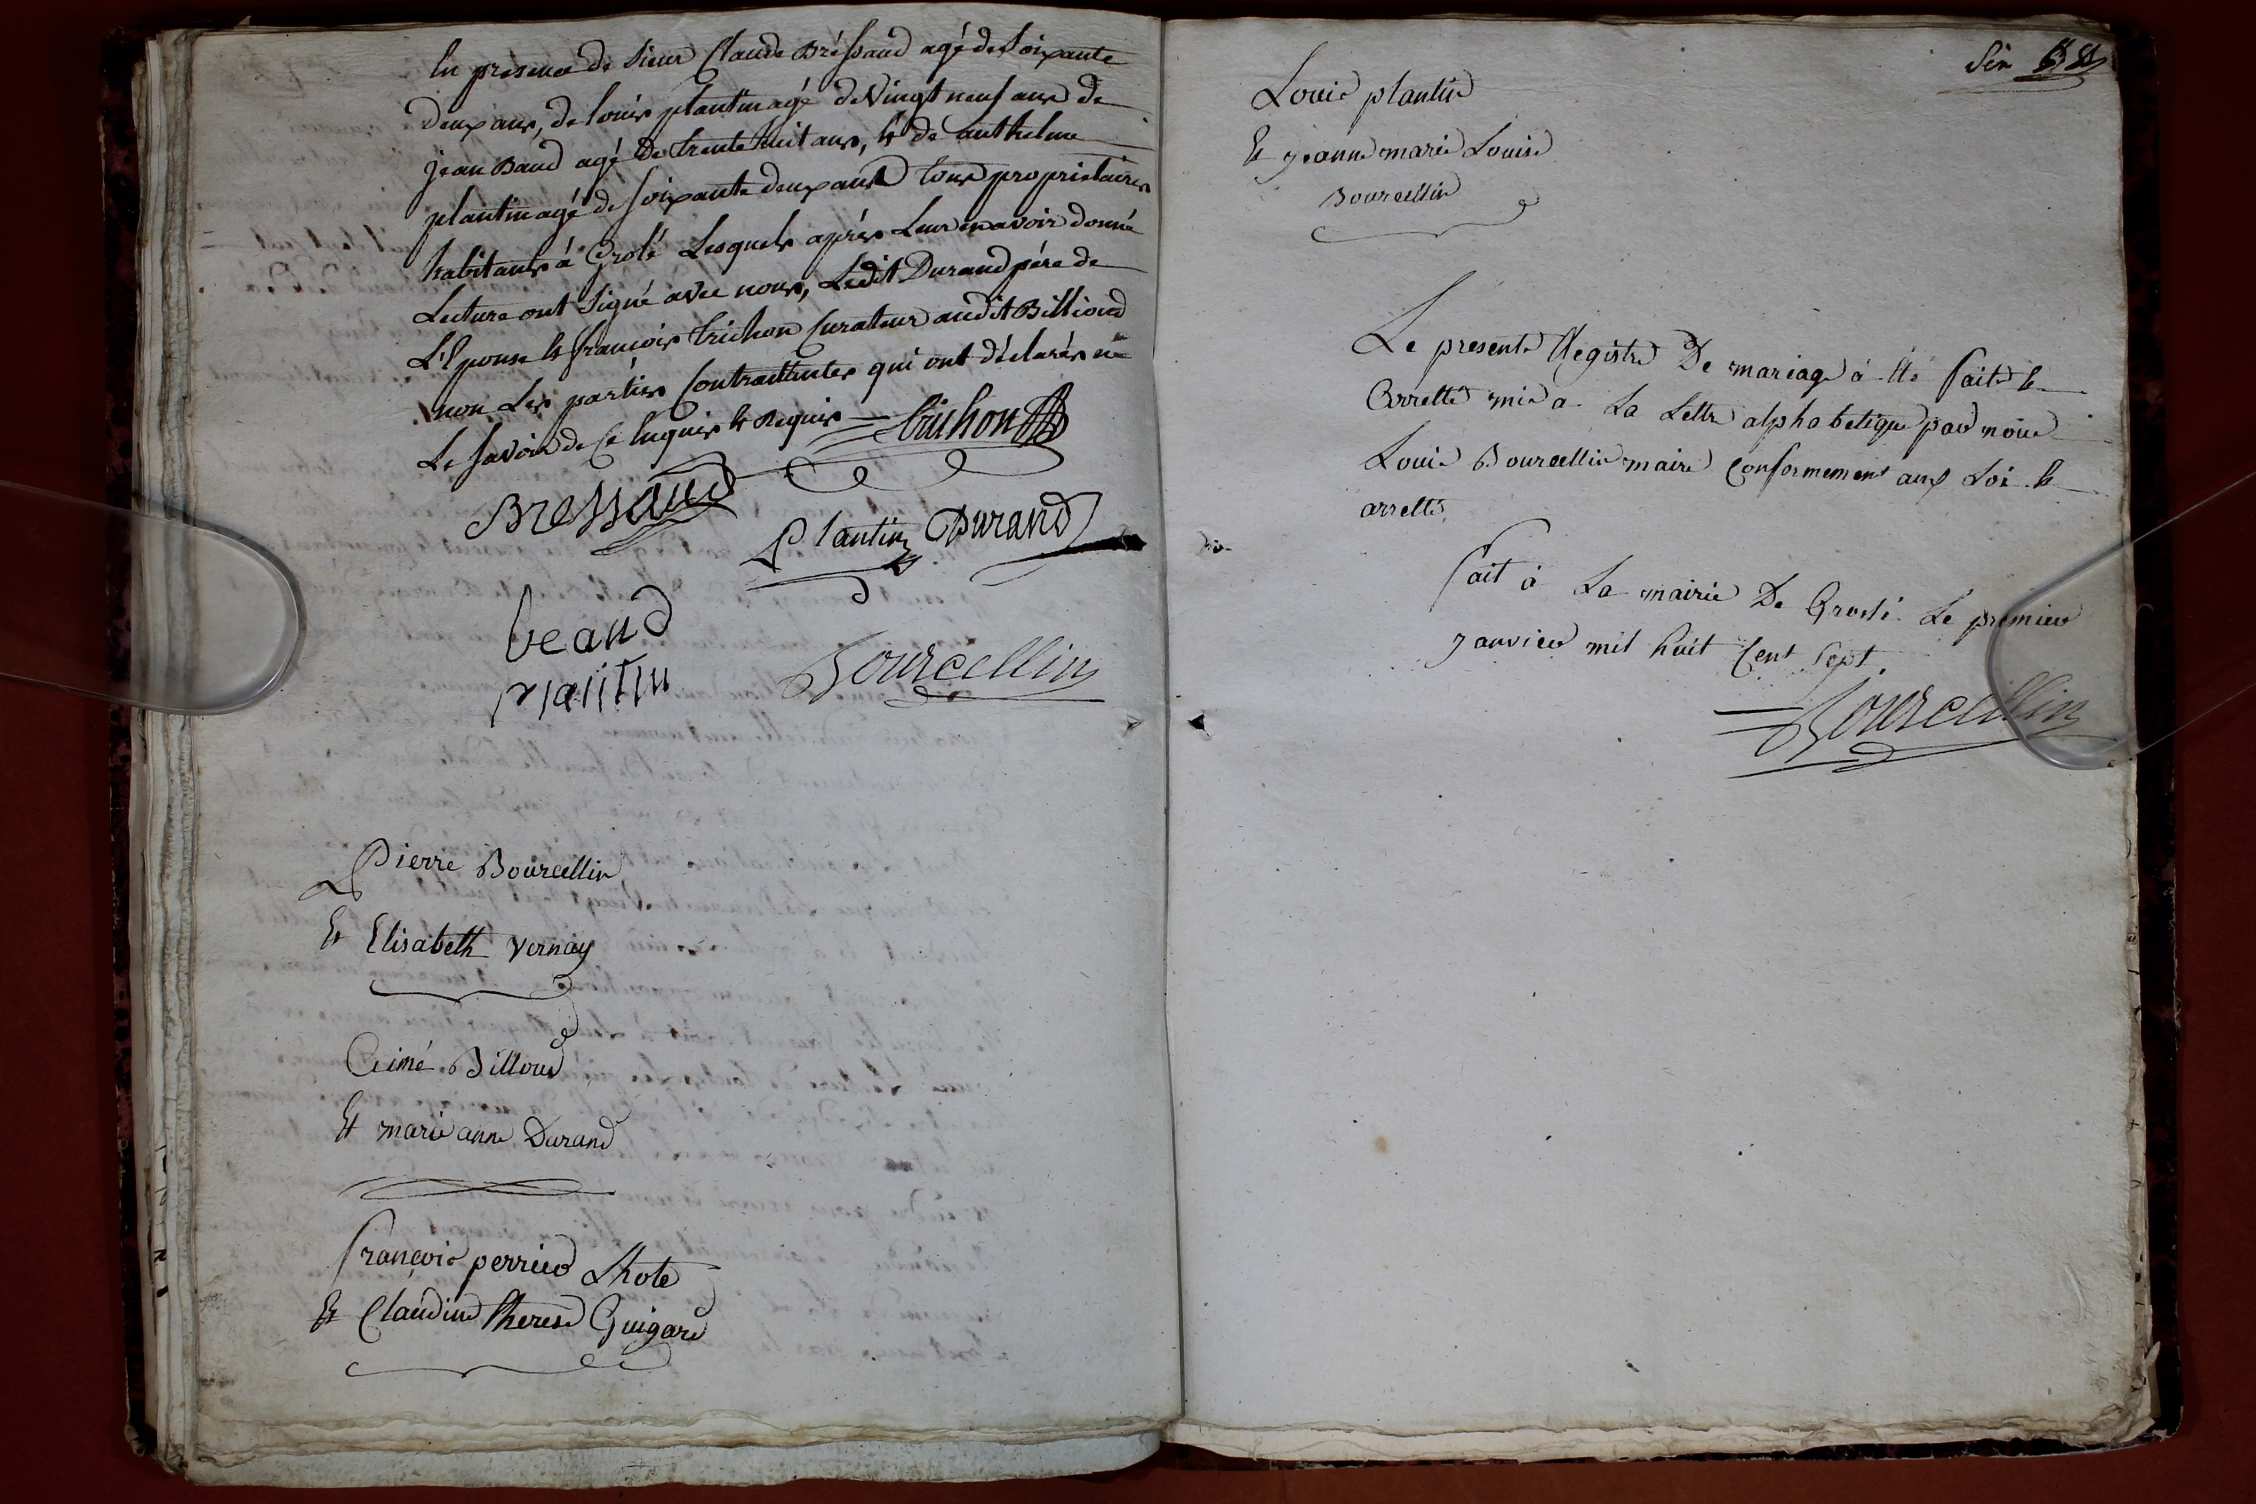 En presence de sieur Claude Bressand agé de soixante
deux ans, de louis plantin agé de vingt neuf ans de
jean Baud agé de trente huit ans, & de anthelme
plantin agé de soixante deux ans tous propriétaires
habitants à Grolé Lesquels après Leur en avoir donné
Lecture ont signé avec nous, Ledit Durand père de
L'Epouse & francois trichon Curateur audit Billioud
non Les parties Contractantes qui ont déclarés ne
Le savoir de Ce Enquis & Requis Trichon
Bressand
Plantin Durand
beaud
plantin
Bourcellin
Pierre Bourcellin
Et Elisabeth Vernay
Aimé Billoud
Et marie anne Durand
françois perrier Lhote
Et Claudine Therese Guigard
Six
Louis plantin
Et jeanne marie Louise
Bourcellin
Le present Registre De mariage à été fait &
Arretté mis a La Lettre alphabetique par nous
Louis Bourcellin maire Conformement aux Loi &
arretté
fait à La mairie De Groslé Le premier
janvier mil huit Cent Sept.
Bourcellin